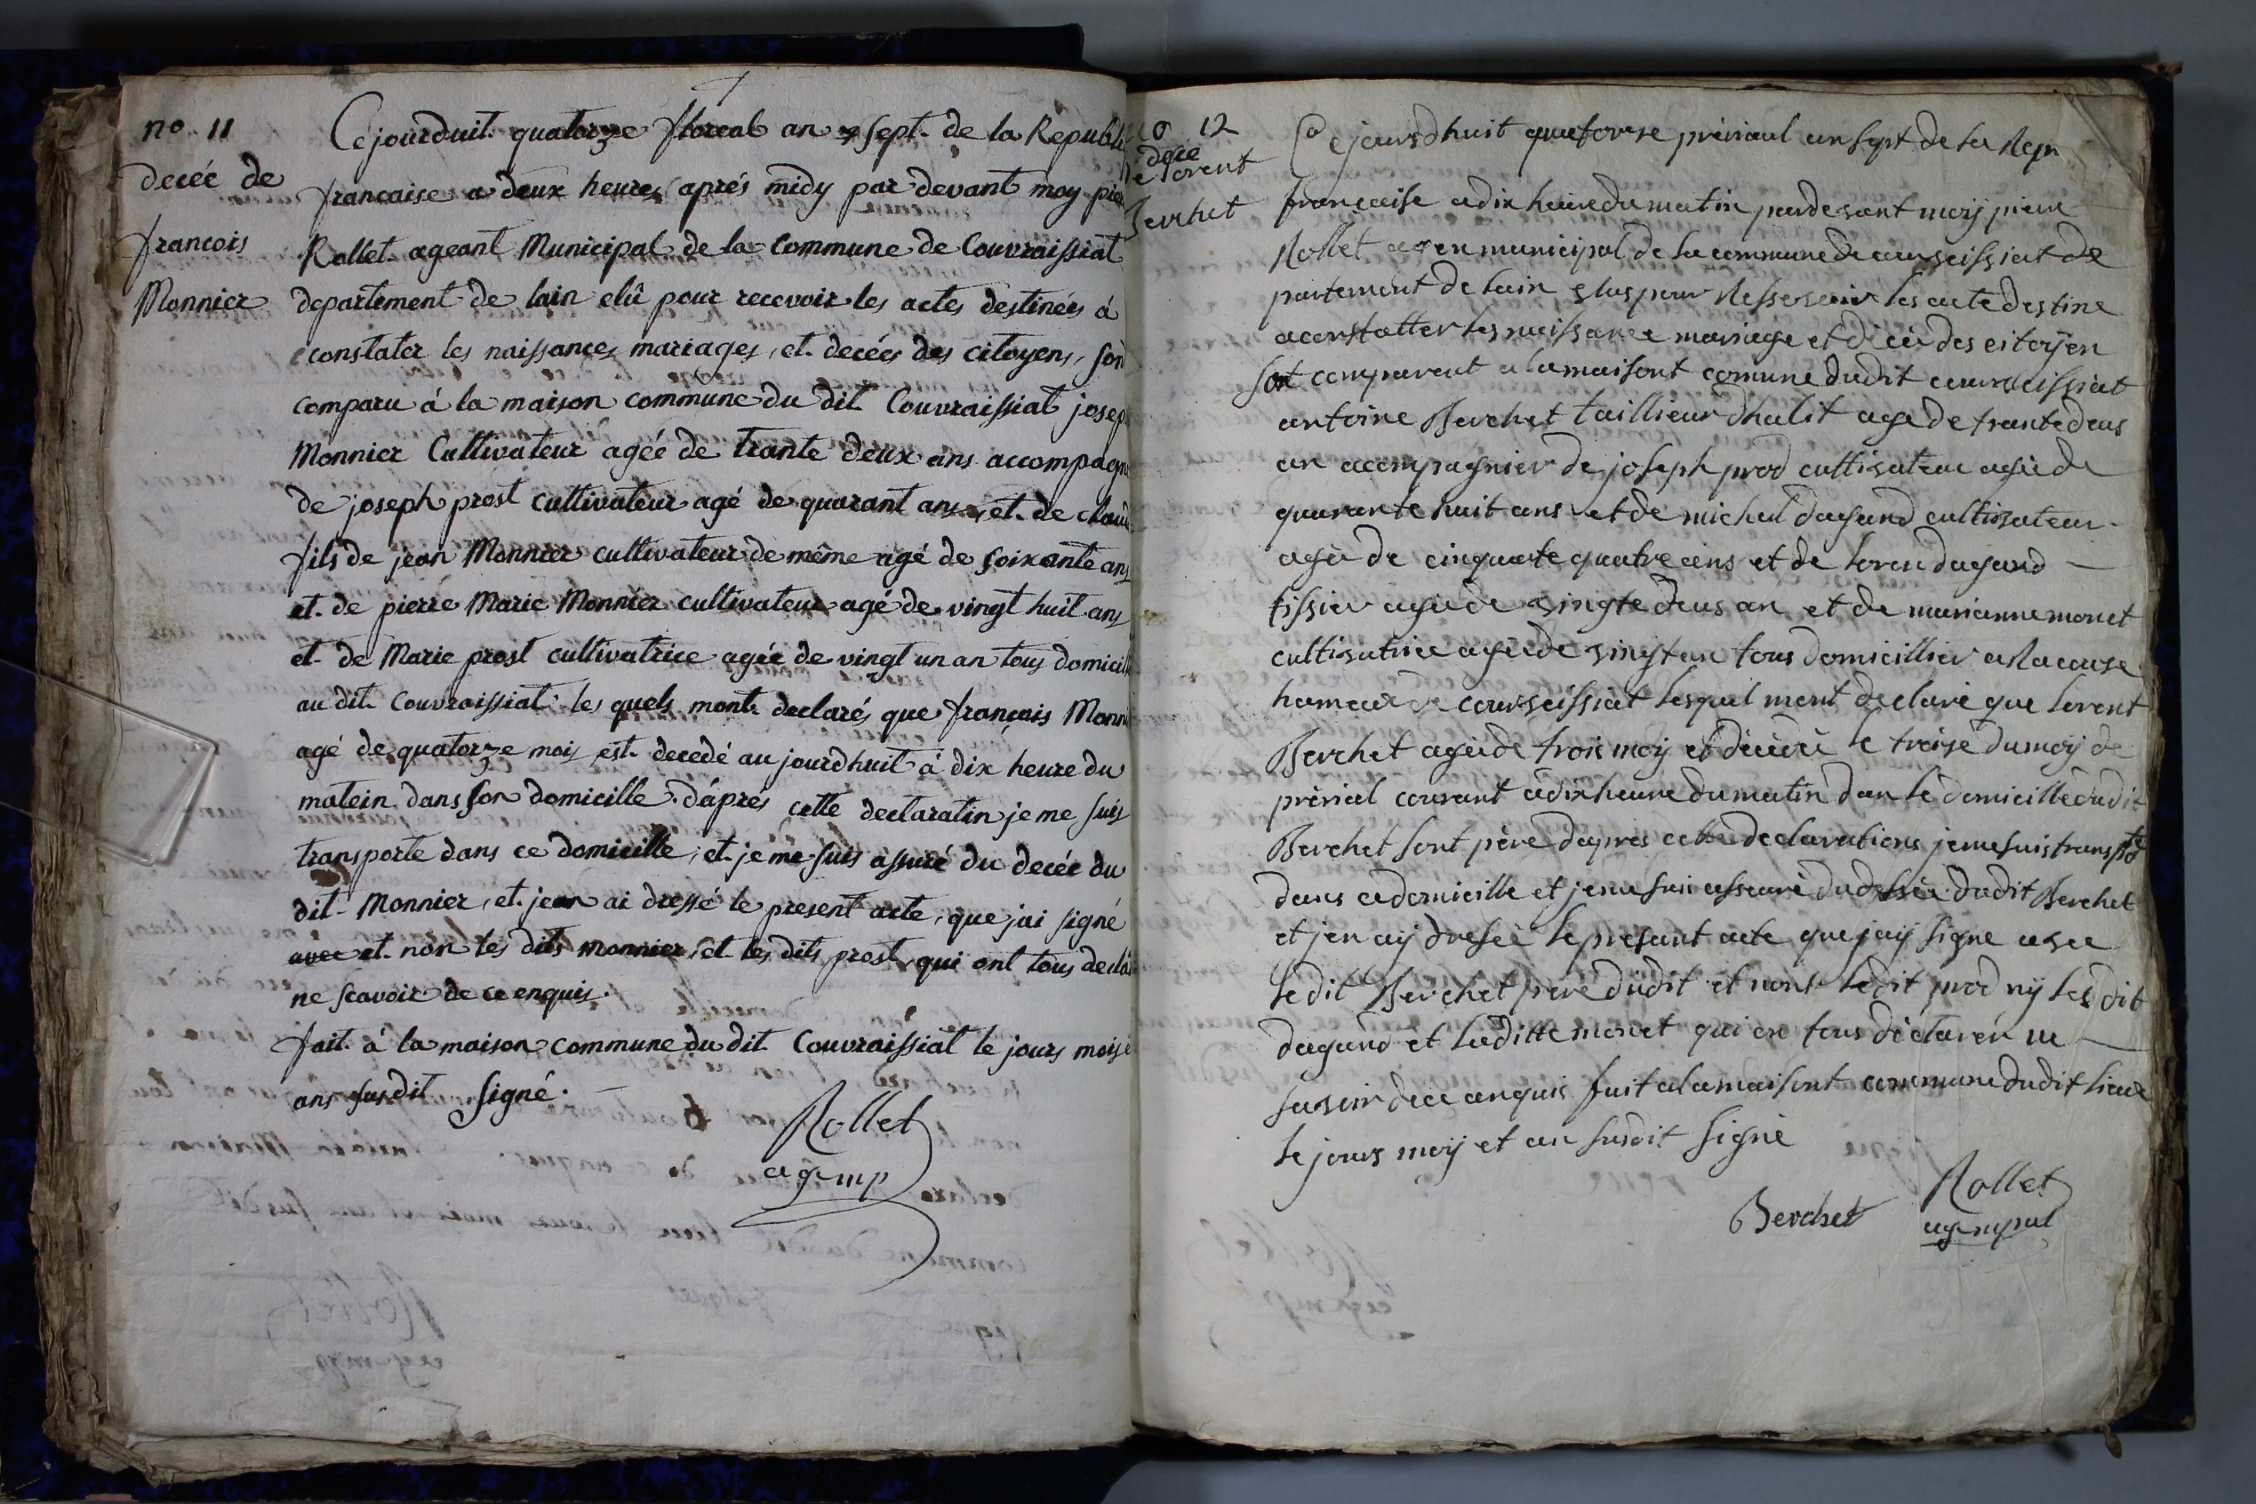 no 11
decée de
francois
Monnier
Cejourduit quatorze floreal an 7 sept de la Republi
francaise a deux heures aprés midy par devant moy pier
Rollet ageant Municipal de la Commune de Couvraissiat
departement de lain elû pour recevoir les actes destinées á
constater les naissances mariages, et decées des citoyens, son
comparu á la maison commune du dit Couvraissiat josep
Monnier Cultivateur agée de trante deux ans accompagn
de joseph prost cultivateur agé de quarant ans, et de claud
fils de jean Monnier cultivateur de même agé de soixante ans
et de pierre Marie Monnier cultivateur agé de vingt huit ans
et de Marie prost cultivatrice agée de vingt un an tous domicili
au dit Couvraissiat les quels mont declarés que françois Monni
agé de quatorze mois est decedé au jourdhuit á dix heure du
matein dans son domicille. dáprés cette declaratin je me suis
transporte dans ce domicille, et je me suis assuré du decée du
dit Monnier, et jean ai dressé le present acte, que jai signé
avec et non les dits monnier, et les dits prost qui ont tous decla
ne scavoir de ce enquis.
fait á la maison commune du dit Couvraissiat le jours mois e
ans susdit signé.
Rollet
ag mp
no 12
dece
de lorent
Berchet
Ce jours dhuit quatorse prèrial an sept de la Repu
française a dix heure du matin pardevant moy pierre
Rollet agen municipal de la commune de courveissiat de
partement de lain elus pour Ressevoir les acte destine
a constatter les naissance mariage et dècès des citoÿen
sont comparent a la maisont comune dudit courveissiat
antoine Berchet taillieur dhabit age de trante deus
an acompagnier de joseph prod cultivateur agè de
quarante huit ans et de michel dagand cultivateur
agè de cinquante quatre ans et de loren dagand
tissier agè de vingte deus an et de marianne monet
cultivatrice agè de vingt an tous domicillier a la couse
hameau de courveissiat lesquel mont declarè que lorent
Berchet agè de trois moy et dècèdè le treise du moy de
prèrial courant a dix heure du matin dan le domicille dudit
Berchet sont père dapres cette declarations je me suis transpte
dans ce domicille et je me suis assurè du decée dudit Berchet
et jen aÿ dresèe le presant acte que jay signe avec
ledit Berchet père dudit et nont ledit prod ny les dit
dagand et laditte monet qui on tous dèclarér ne
savoir de ce anquis fait a la maisont commune dudit lieux
le jours moy et an susdit signè
Berchet
Rollet
ag mpal